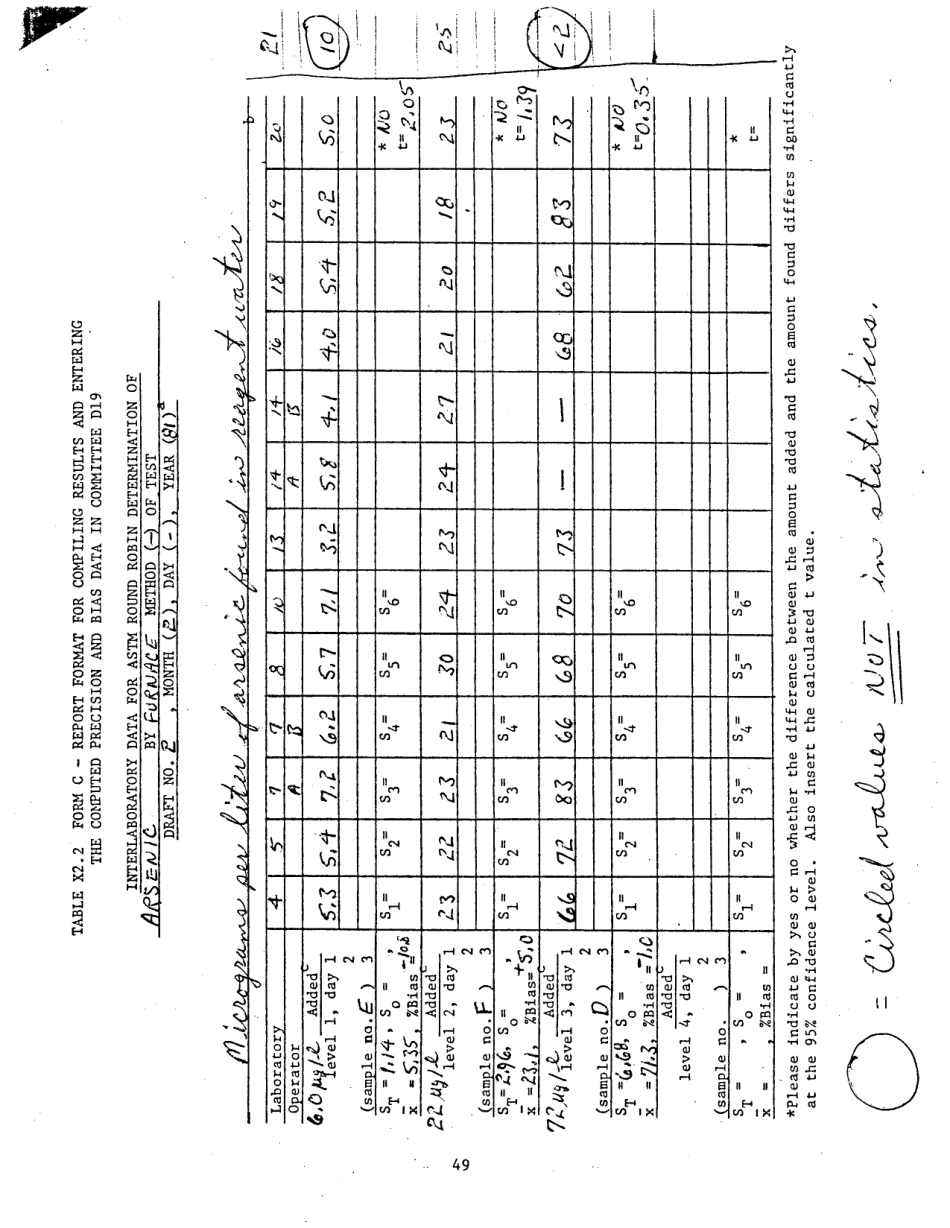 TABLE X2.2 FORM C - REPORT FORMAT FOR COMPILING RESULTS AND ENTERING
THE COMPUTED PRECISION AND BIAS DATA IN COMMITTEE D19
INTERLABORATORY DATA FOR ASTM ROUND ROBIN DETERMINATION OF
ARSENIC BY FURNACE METHOD (-) OF TEST
DRAFT NO. 2, MONTH (2), DAY (-), YEAR (81)a
Micrograms per liter of arsenic found in reagent water b
Laboratory 4 5 7 7 8 10 13 14 14 16 18 19 20 21
Operator A B A B
6.0 µg/l Addedc
level 1, day 1 5.3 5.4 7.2 6.2 5.7 7.1 3.2 5.8 4.1 4.0 5.4 5.2 5.0 10
2
(sample no. E) 3
ST = 1.14, So = , S1= S2= S3= S4= S5= S6= * NO
x̄ = 5.35, %Bias = -10.8 t= 2.05
22 µg/l Addedc
level 2, day 1 23 22 23 21 30 24 23 24 27 21 20 18 23 25
2
(sample no. F) 3
ST = 2.96, So = , S1= S2= S3= S4= S5= S6= * NO
x̄ = 23.1, %Bias= +5.0 t= 1.39
72 µg/l Addedc
level 3, day 1 66 72 83 66 68 70 73 — — 68 62 83 73 <2
2
(sample no. D) 3
ST = 6.68, So = , S1= S2= S3= S4= S5= S6= * NO
x̄ = 71.3, %Bias = -1.0 t=0.35
Addedc
level 4, day 1
2
(sample no. ) 3
ST = , So = , S1= S2= S3= S4= S5= S6= *
x̄ = , %Bias = t=
*Please indicate by yes or no whether the difference between the amount added and the amount found differs significantly
at the 95% confidence level. Also insert the calculated t value.
= Circled values NOT in statistics.
49